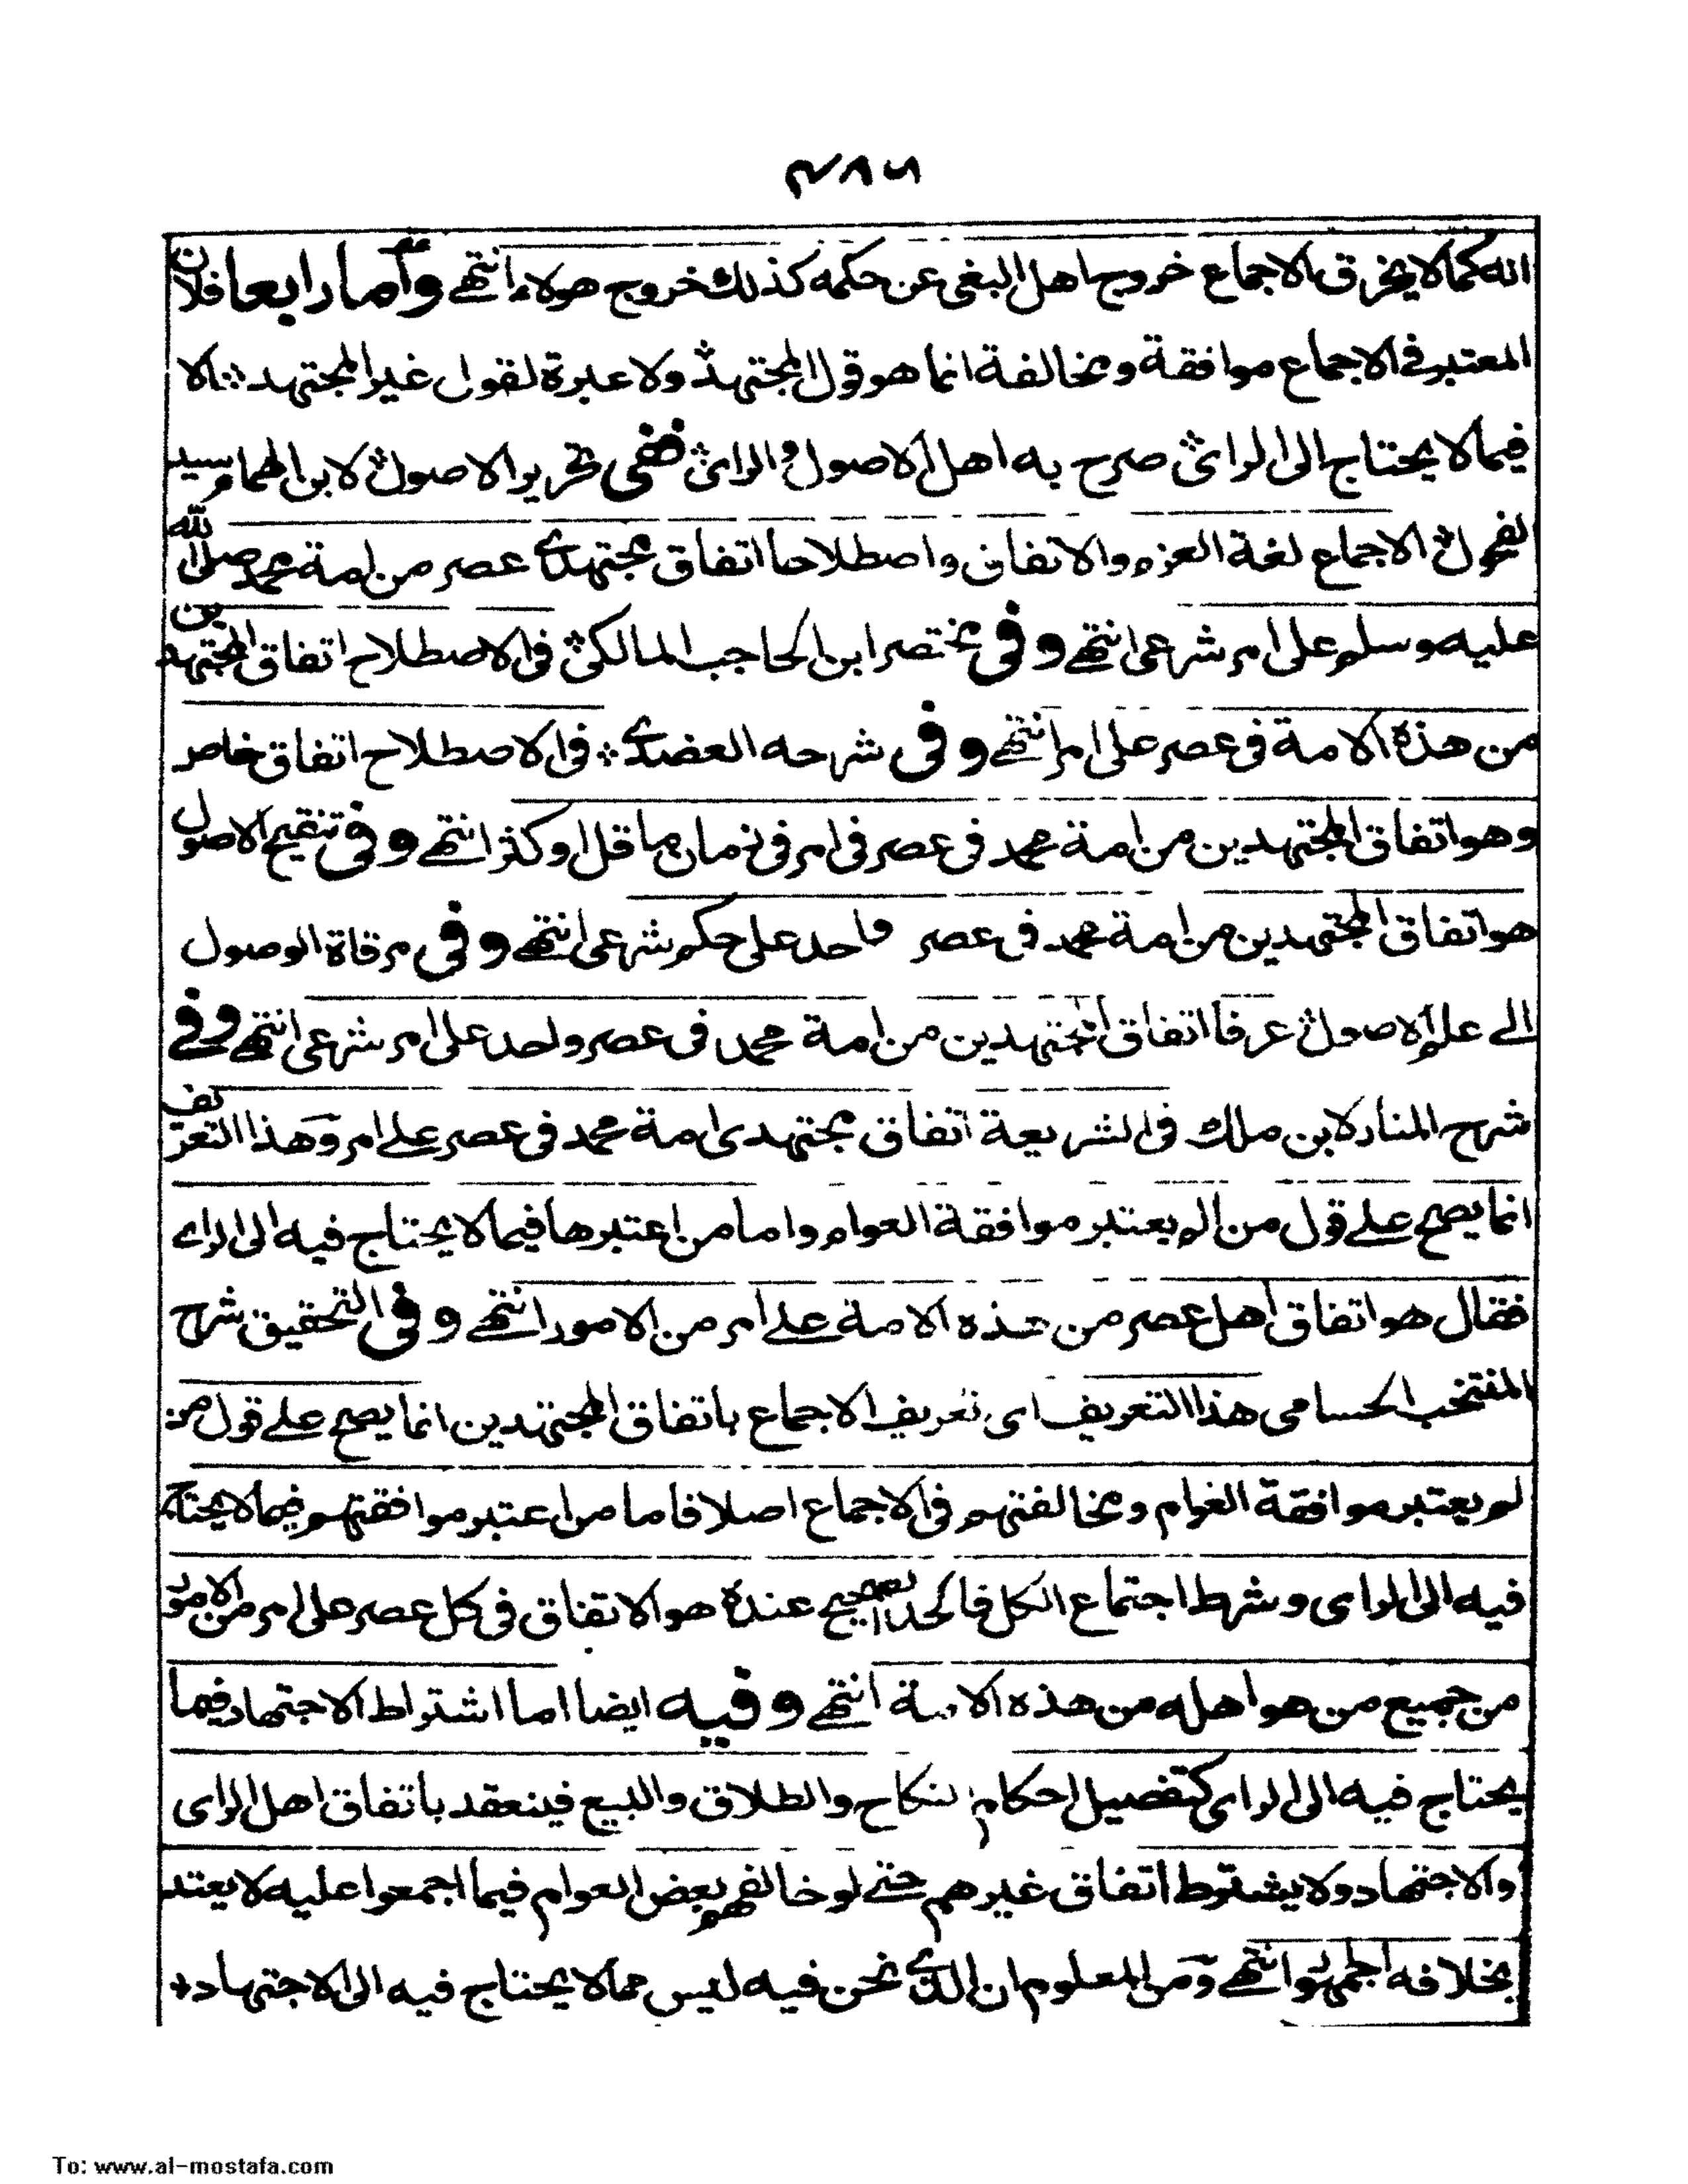 ٤٨٥
انه كما لا يخرق الاجماع خروج اهل البغى عن حكمه كذلك خروج هولاء انتهے وأما رابعا فلان
المعتبر فے الاجماع موافقة ومخالفة انما هو قول المجتهد ولا عبرة لقول غير المجتهد الا
فيما لا يحتاج الى الراى صرح به اهل الاصول والراى ففى تحرير الاصول لابن الهمام سيد
الفحول الاجماع لغة العزم والاتفاق واصطلاحا اتفاق مجتهدے عصر من امة محمد صلى الله
عليه وسلم على امر شرعى انتهے وفى مختصر ابن الحاجب المالكى فى الاصطلاح اتفاق المجتهدين
من هذه الامة فى عصر على امر انتهے وفى شرحه العضدے فى الاصطلاح اتفاق خاص
وهو اتفاق المجتهدين من امة محمد فى عصر فى امر فى زمان ما قل او كثر انتهے وفى تنقيح الاصول
هو اتفاق المجتهدين من امة محمد فى عصر واحد على حكم شرعى انتهے وفى مرقاة الوصول
الے علم الاصول عرفا اتفاق المجتهدين من امة محمد فى عصر واحد على امر شرعى انتهے وفے
شرح المنار لابن ملك فى الشريعة اتفاق مجتهدى امة محمد فى عصر علے امر وهذا التعريف
انما يصح علے قول من لم يعتبر موافقة العوام واما من اعتبرها فيما لا يحتاج فيه الى الراے
فقال هو اتفاق اهل عصر من هذه الامة علے امر من الامور انتهے وفى التحقيق شرح
المنتخب الحسامى هذا التعريف اى تعريف الاجماع باتفاق المجتهدين انما يصح علے قول من
لم يعتبر موافقة العوام ومخالفتهم فى الاجماع اصلا فاما من اعتبر موافقتهم فيما لا يحتاج
فيه الى الراى وشرط اجتماع الكل فالحد الصحيح عنده هو الاتفاق فى كل عصر على امر من الامور
من جميع من هو اهله من هذه الامة انتهے وفيه ايضا اما اشتراط الاجتهاد فيما
يحتاج فيه الى الراى كتفصيل احكام النكاح والطلاق والبيع فينعقد باتفاق اهل الراى
والاجتهاد ولا يشترط اتفاق غيرهم حتے لو خالفهم بعض العوام فيما اجمعوا عليه لا يعتد
بخلافه الجمهور انتهے ومن المعلوم ان الذے نحن فيه ليس مما لا يحتاج فيه الى الاجتهاد
To: www.al-mostafa.com